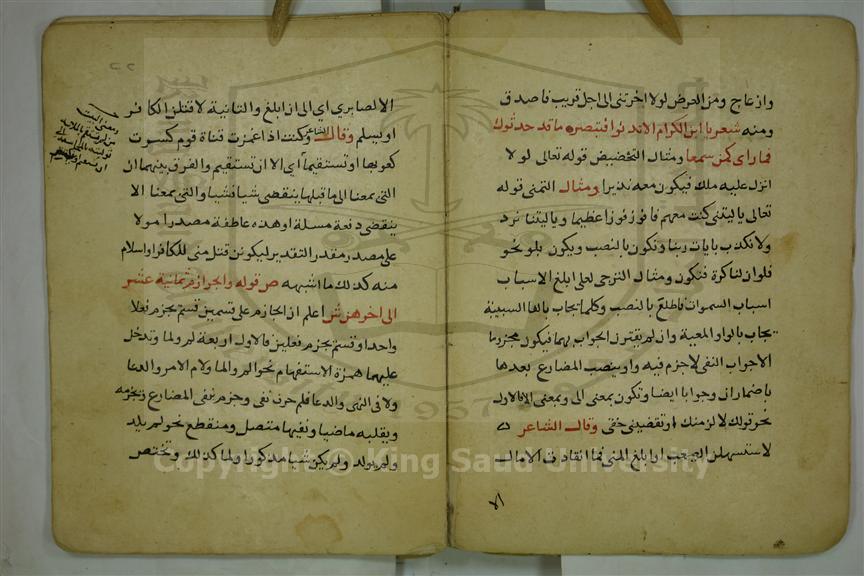 وازعاج ومن العرض لولا اخرتنى الى اجل قريب فاصدق
ومنه شعر يا ابن الكرام الا تدنوا فتبصر ما قد حدثوك
فما راى كمن سمعا ومثال التخضيض قوله تعالى لولا
انزل عليه ملك فيكون معه نذيرا ومثال التمنى قوله
تعالى يا ليتنى كنت معهم فافوز فوزا عظيما ويا ليتنا نرد
ولا نكذب بايات ربنا ونكون بالنصب ويكون بلو نحو
فلو ان لنا كرة فنكون ومثال الترجى لعلى ابلغ الاسباب
اسباب السموات فاطلع بالنصب وكلما يجاب بالفا السببية
يجاب بالواو المعية وان لم يقترن الجواب بهما فيكون مجزوما
الا جواب النفى لا جزم فيه واو ينصب المضارع بعدها
باضمار ان وجوبا ايضا وتكون بمعنى الى وبمعنى الا فالاول
نحو قولك لالزمنك او تقضينى حقى وقال الشاعر
لاستسهلن الصعب او ابلغ المنى فما انقادت الامال
الا
الا لصابرى اى الى ان ابلغ والثانية لاقتلن الكافر
او يسلم وقال الشاعر وكنت اذا غمزت قناة قوم كسرت
كعوبها او تستقيما اى الا ان تستقيم والفرق بينهما ان
التى بمعنا الى ما قبلها ينقضى شيا فشيا والتى بمعنا الا
ينقضى دفعة مسلة او هذه عاطفة مصدرا مولا
على مصدر مقدر التقدير ليكونن قتل منى للكافر او اسلام
منه كذلك ما اشبهه ص قوله والجوازم ثمانية عشر
الى اخرهن ش اعلم ان الجازم على قسمين قسم يجزم فعلا
واحدا وقسم يجزم فعلين فالاول اربعة لم ولما وتدخل
عليهما همزة الاستفهام نحو الم والما ولام الامر والدعا
ولا فى النهى والدعا فلم حرف نفى وجزم نفى المضارع وتجزمه
ويقلبه ماضيا ونفيها متصل ومنقطع نحو لم يلد
ولم يولد ولم يكن شيا مذكورا ولما كذلك وتختص
ومعنى البيت
Copyright © King Saud University
1957